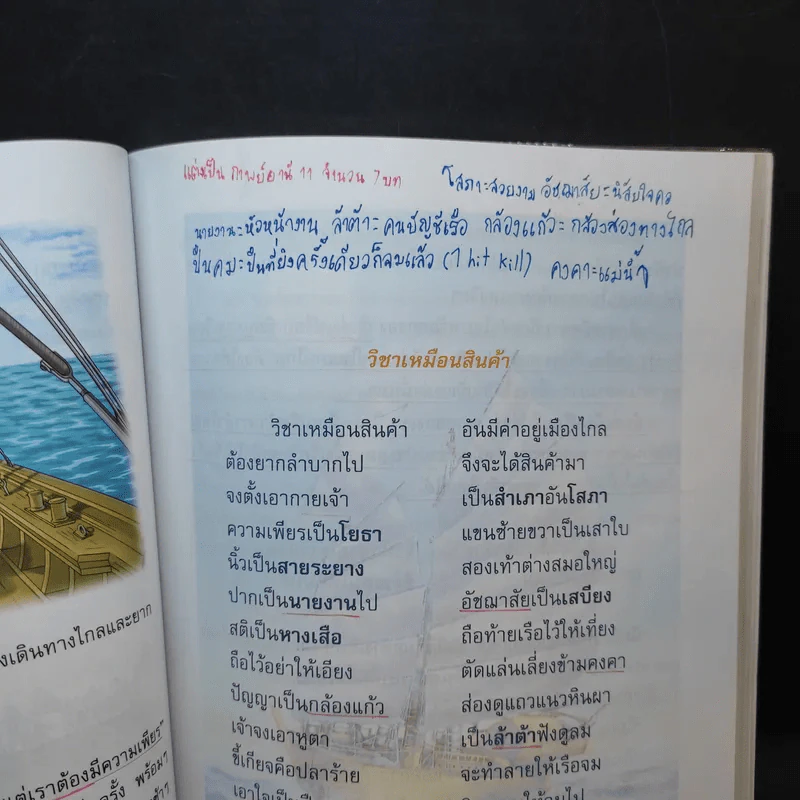 แต่งเป็น กาพย์ยานี 11 จำนวน 7 บท
โสภา=สวยงาม อัชฌาสัย=นิสัยใจคอ
นายงาน=หัวหน้างาน ล้าต้า=คนบัญชีเรือ กล้องแก้ว=กล้องส่องทางไกล
ปืนคม=ปืนที่ยิงครั้งเดียวก็จมแล้ว (1 hit kill) คงคา=แม่น้ำ
วิชาเหมือนสินค้า
วิชาเหมือนสินค้า อันมีค่าอยู่เมืองไกล
ต้องยากลำบากไป จึงจะได้สินค้ามา
จงตั้งเอากายเจ้า เป็นสำเภาอันโสภา
ความเพียรเป็นโยธา แขนซ้ายขวาเป็นเสาใบ
นิ้วเป็นสายระยาง สองเท้าต่างสมอใหญ่
ปากเป็นนายงานไป อัชฌาสัยเป็นเสบียง
สติเป็นหางเสือ ถือท้ายเรือไว้ให้เที่ยง
ถือไว้อย่าให้เอียง ตัดแล่นเลี่ยงข้ามคงคา
ปัญญาเป็นกล้องแก้ว ส่องดูแถวแนวหินผา
เจ้าจงเอาหูตา เป็นล้าต้าฟังดูลม
ขี้เกียจคือปลาร้าย จะทำลายให้เรือจม
เอาใจเป็น
งเดินทางไกลและยาก
แต่เราต้องมีความเพียร"
ครั้ง พร้อมๆ